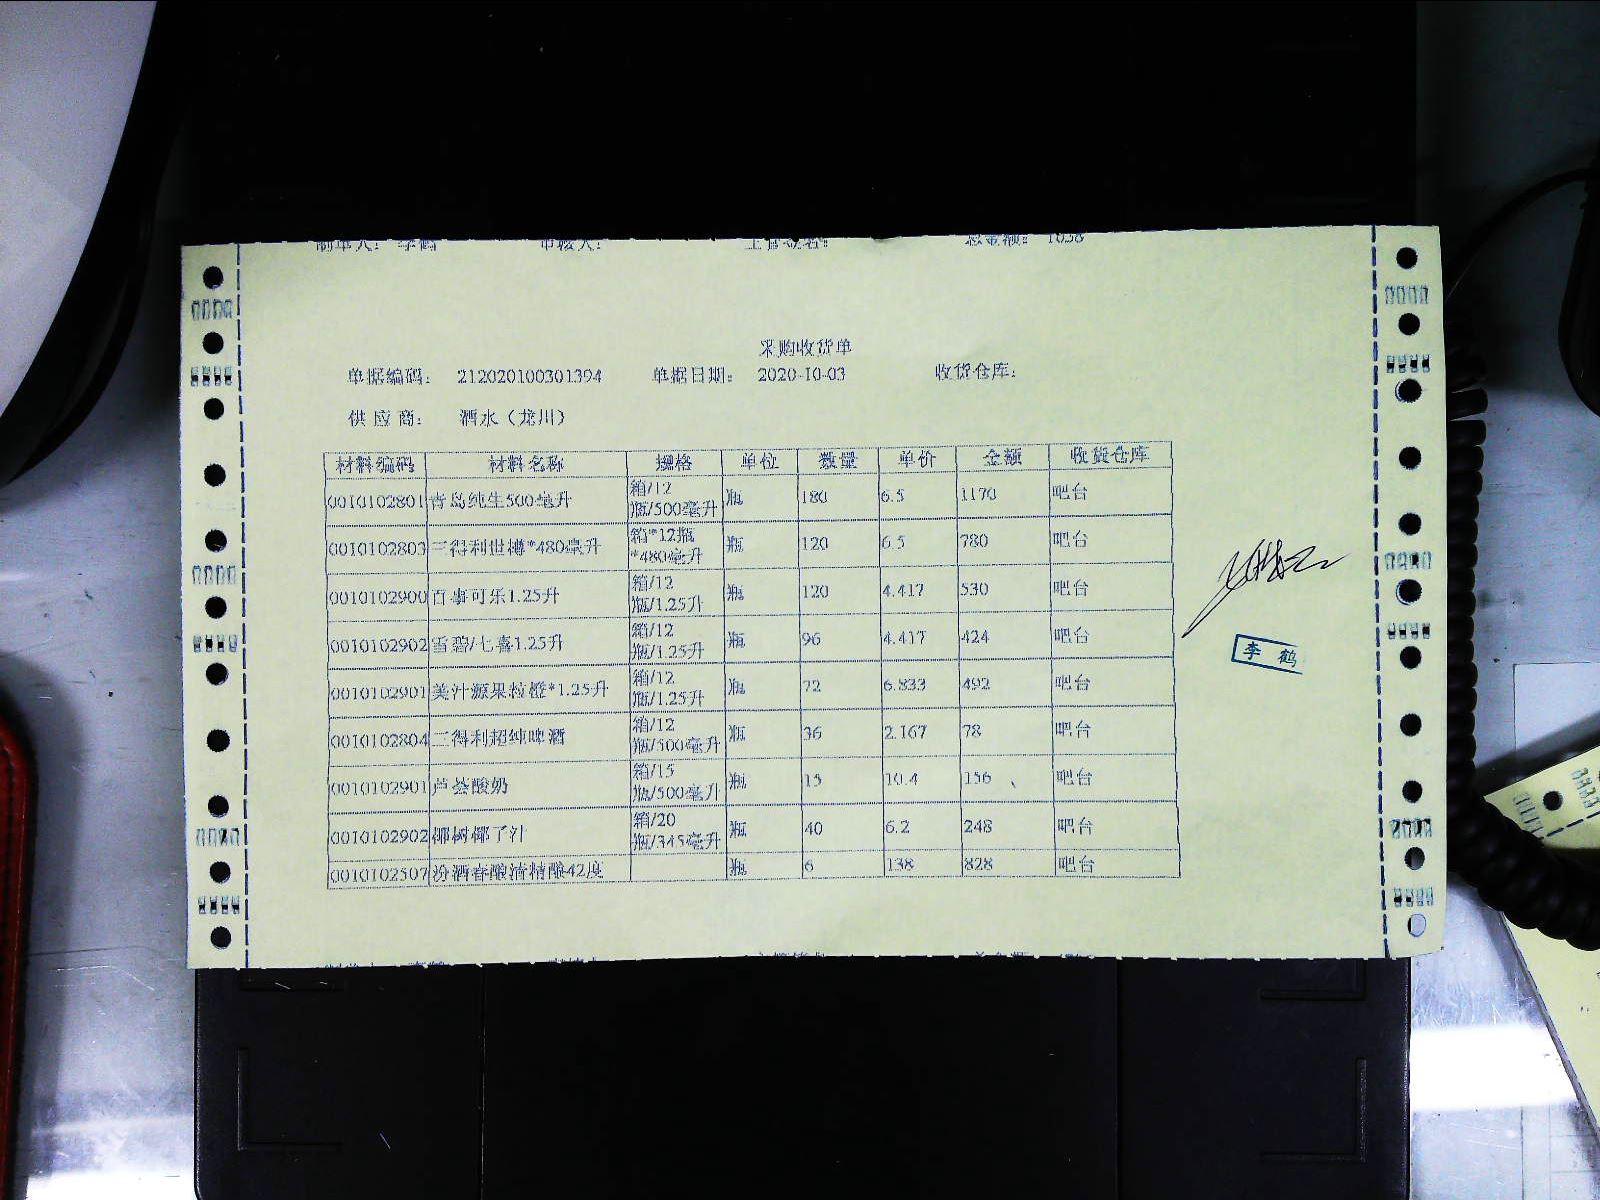 制单人： 李鹤 审核人： 主管签名： 总金额： 1038
采购收货单
单据编码： 212020100301394 单据日期： 2020-10-03 收货仓库：
供 应 商： 酒水（龙川）
材料编码 材料名称 规格 单位 数量 单价 金额 收货仓库
0010102801 青岛纯生500毫升 箱/12瓶/500毫升 瓶 180 6.5 1170 吧台
0010102803 三得利世博*480毫升 箱*12瓶*480毫升 瓶 120 6.5 780 吧台
0010102900 百事可乐1.25升 箱/12瓶/1.25升 瓶 120 4.417 530 吧台
0010102902 雪碧/七喜1.25升 箱/12瓶/1.25升 瓶 96 4.417 424 吧台
0010102901 美汁源果粒橙*1.25升 箱/12瓶/1.25升 瓶 72 6.833 492 吧台
0010102804 三得利超纯啤酒 箱/12瓶/500毫升 瓶 36 2.167 78 吧台
0010102901 芦荟酸奶 箱/15瓶/500毫升 瓶 15 10.4 156 吧台
0010102902 椰树椰子汁 箱/20瓶/345毫升 瓶 40 6.2 248 吧台
0010102507 汾酒春酿清精酿42度 瓶 6 138 828 吧台
李 鹤